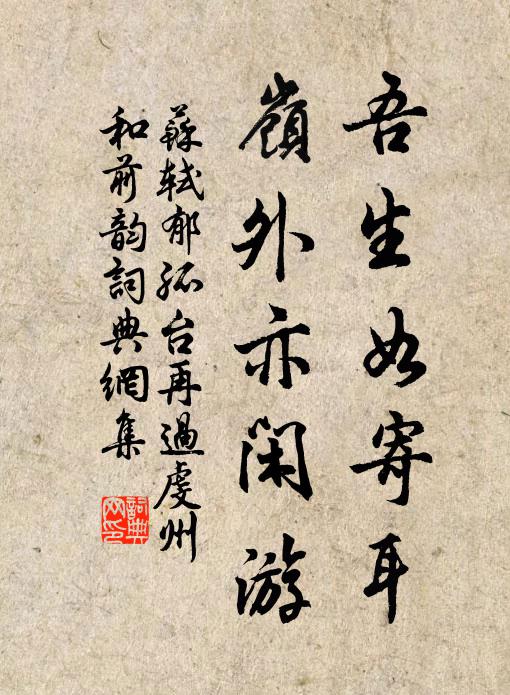 吾生如寄耳
嶺外亦閑游
蘇軾郁孤台再過虔州
和前韵詞典網集
詞典
网印